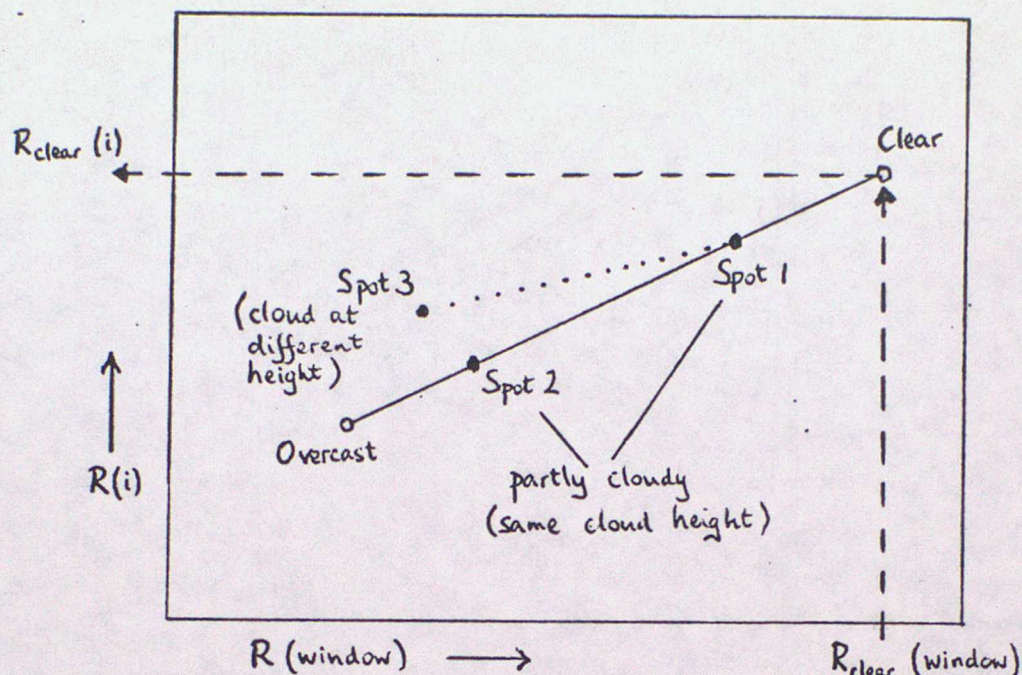 R clear (i)
Clear
Spot 1
Spot 3
(cloud at
different
height)
Spot 2
Overcast
R(i)
partly cloudy
(same cloud height)
R (window)
R clear (window)